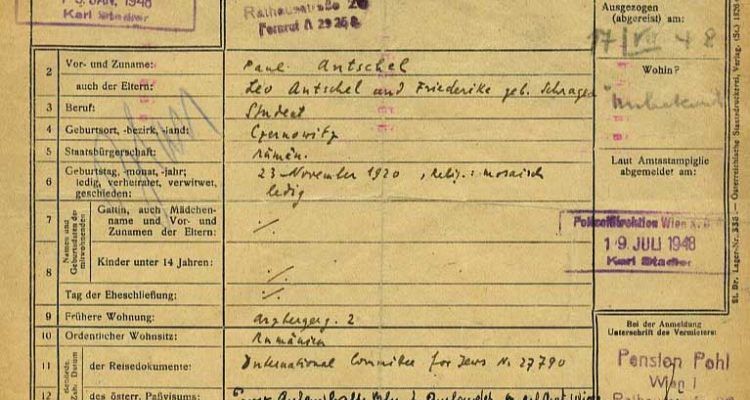 19. JAN. 1948
Karl Stadler
Rathausstraße 20
Fernruf A 29 26 8
Ausgezogen
(abgereist) am:
17/VII 48
Wohin?
"Unbekannt"
Laut Amtsstampiglie
abgemeldet am:
2 Vor- und Zuname: Paul Antschel
auch der Eltern: Leo Antschel und Friederike geb. Schrager
3 Beruf: Student
4 Geburtsort, -bezirk, -land: Czernowitz
5 Staatsbürgerschaft: Rumän.
6 Geburtstag, -monat, -jahr; 23 November 1920, Relig.: mosaisch
ledig, verheiratet, verwitwet, ledig
geschieden:
Namen und
Geburtsdaten der
mitwohnenden
7 Gattin, auch Mädchen-
name und Vor- und
Zunamen der Eltern: ./.
8 Kinder unter 14 Jahren: ./.
Tag der Eheschließung: ./.
Polizeidirektion Wien
19. JULI 1948
Karl Stadler
9 Frühere Wohnung: Arzbergerg. 2
10 Ordentlicher Wohnsitz: Rumänien
11 der Reisedokumente: International Committee for Jews N. 27790
12 des österr. Paßvisums:
Bei der Anmeldung
Unterschrift des Vermieters:
Pension Pohl
Wien I
St. Dr. Lager-Nr. 338. — Österreichische Staatsdruckerei, Verlag. (St.)